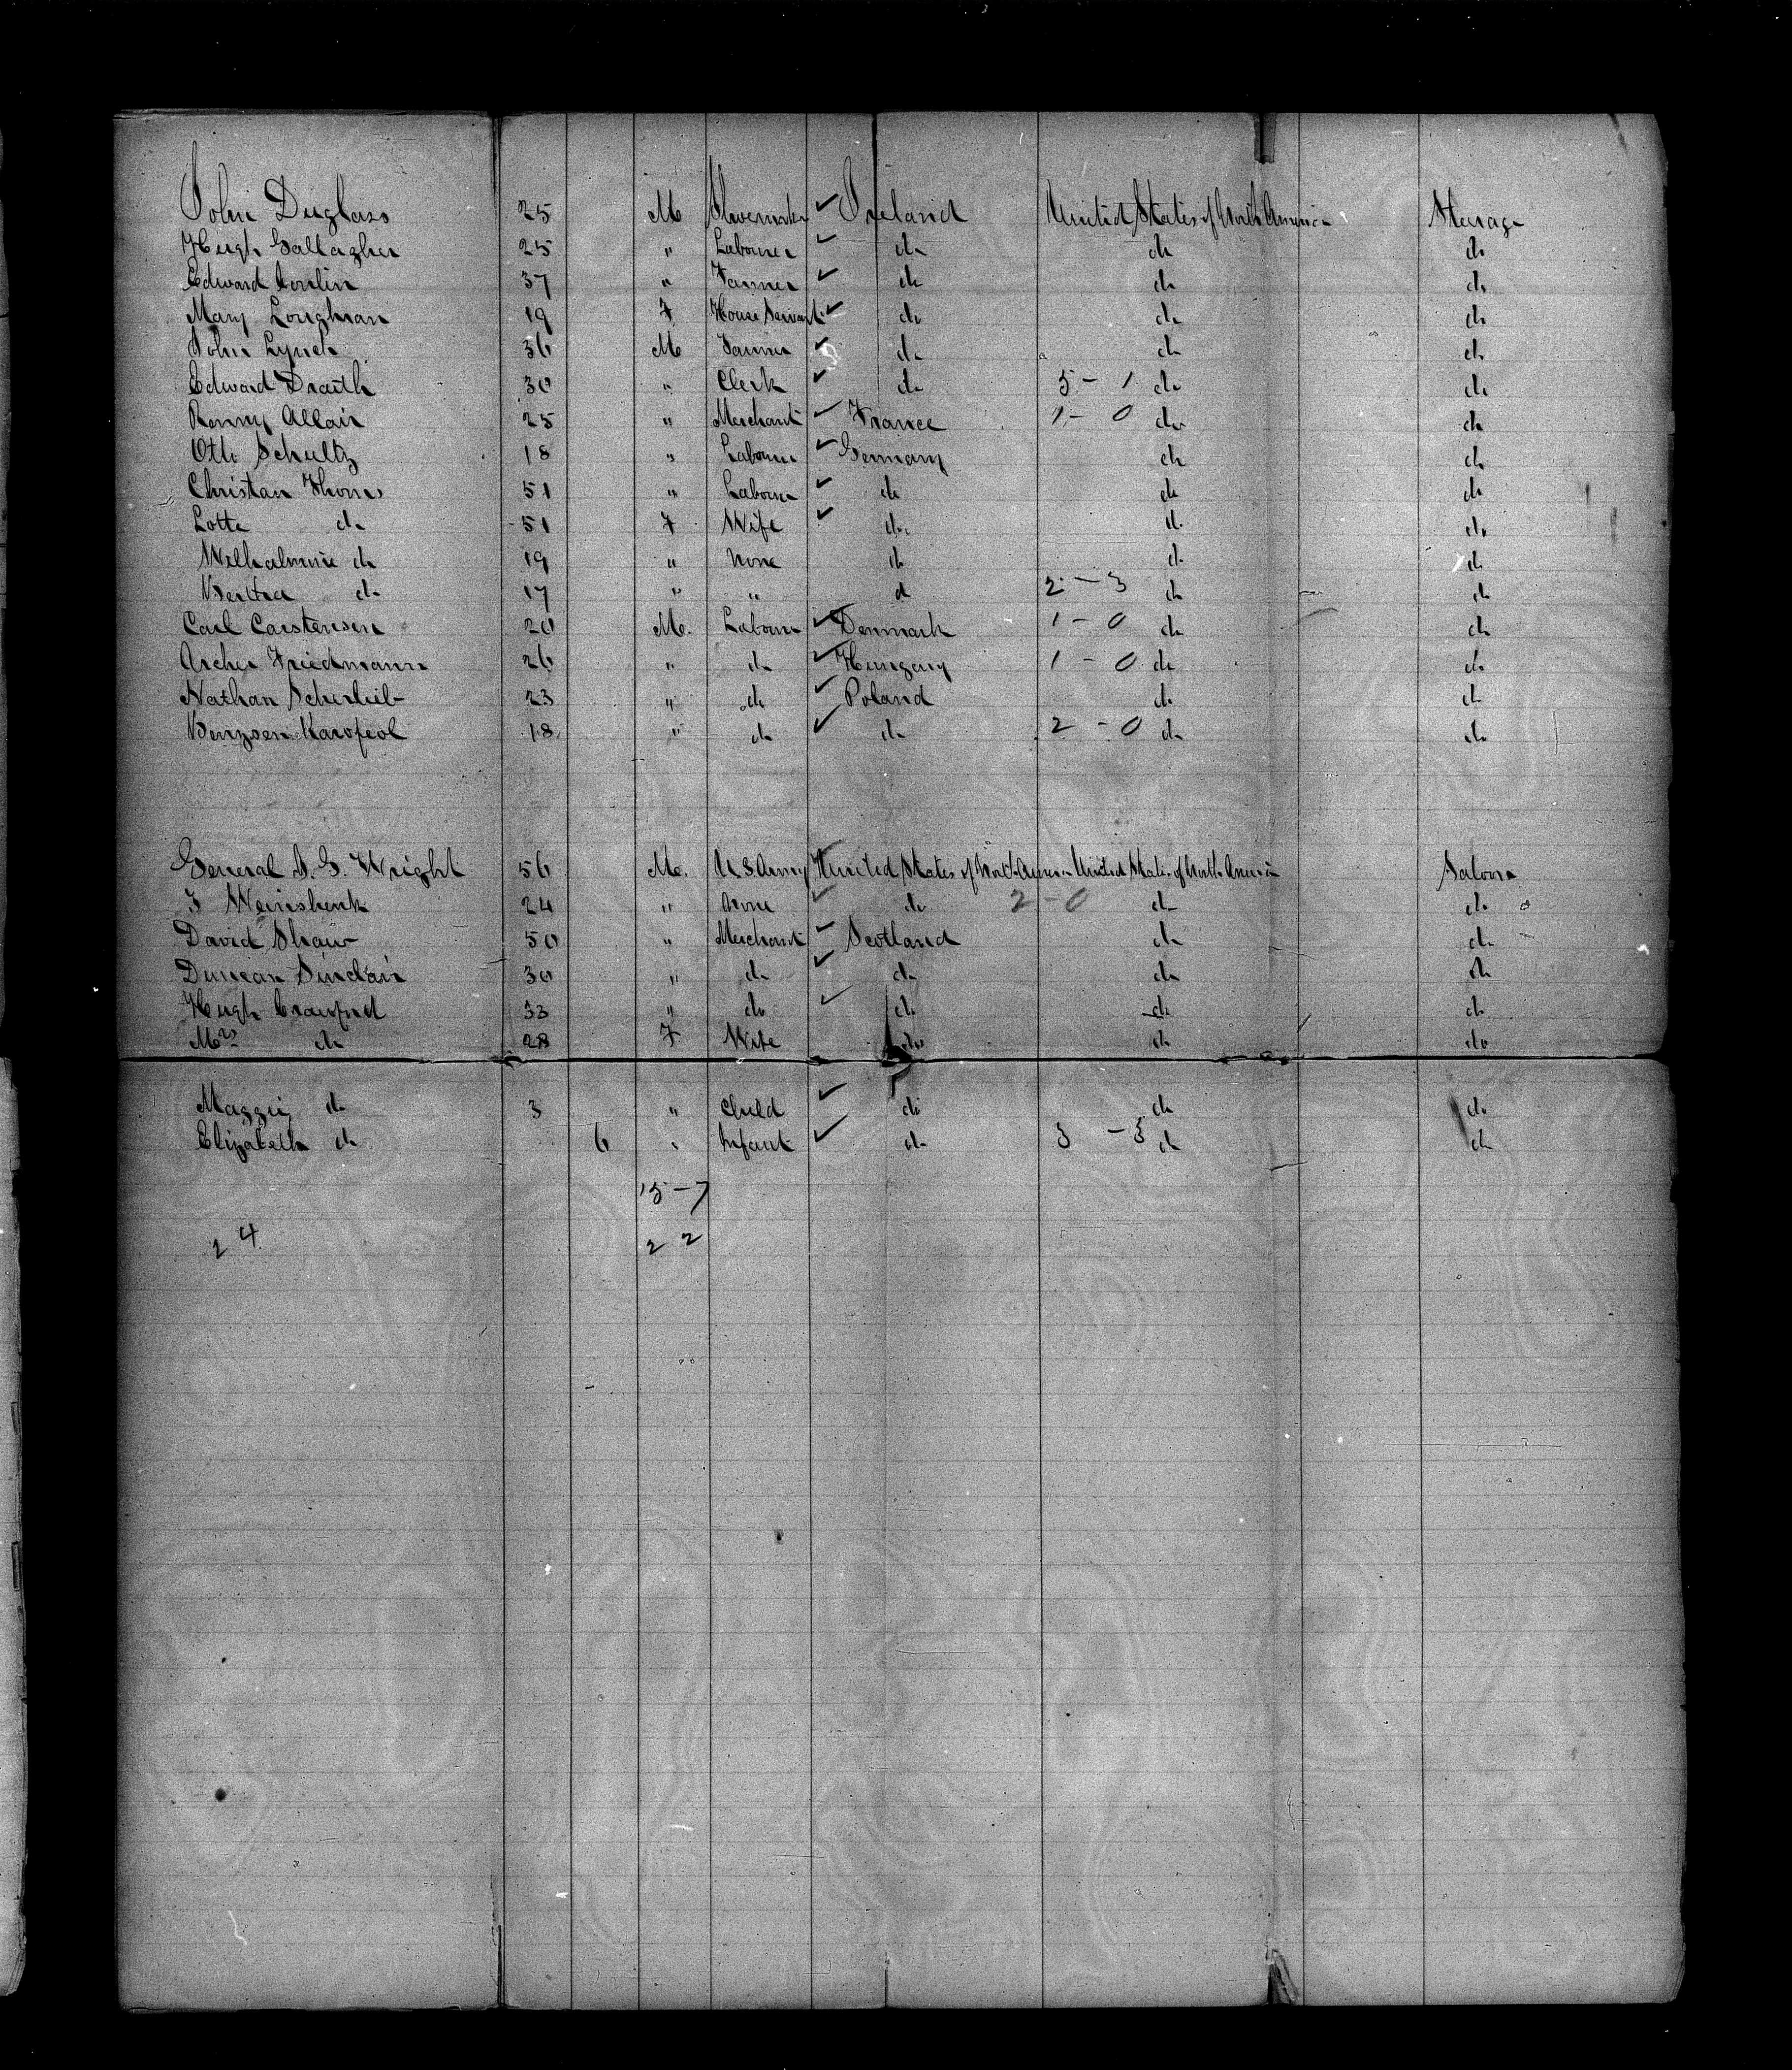 John Duglass 25 M Shoemaker ✓ Ireland United States of North America Sterage
Hugh Gallagher 25 " Labourer ✓ do do do
Edward Conlin 37 " Farmer ✓ do do do
Mary Loughran 19 F House Servant ✓ do do do
John Lynch 36 M Farmer ✓ do do do
Edward Draith 30 " Clerk ✓ do 5 - 1 do do
Allair 25 " Merchant ✓ France 1 - 0 do do
Otto Schultz 18 " Labourer ✓ Germany do do
Christan Thoms 51 " Labourer ✓ do do do
Lotte do 51 F Wife ✓ do do do
Wilhalmine do 19 " None do do do
Bertha do 17 " " do 2 - 3 do do
Carl Carstensen 20 M. Labourer ✓ Denmark 1 - 0 do do
Archer Friedmann 26 " do ✓ Hungary 1 - 0 do do
Nathan 23 " do ✓ Poland do do
18 " do ✓ do 2 - 0 do do
General Wright 56 M. U.S. Army United States of North America United States of North America Saloon
Weinshenk 24 " None ✓ do 2 - 0 do do
David Shaw 50 " Merchant ✓ Scotland do do
Duncan Sinclair 30 " do ✓ do do do
Hugh Crawford 33 " do ✓ do do do
Mrs do 28 F Wife do do do
Maggie do 3 " Child ✓ do do do
Elizabeth do 6 " Infant ✓ do 3 - 3 do do
15 - 7
24 22